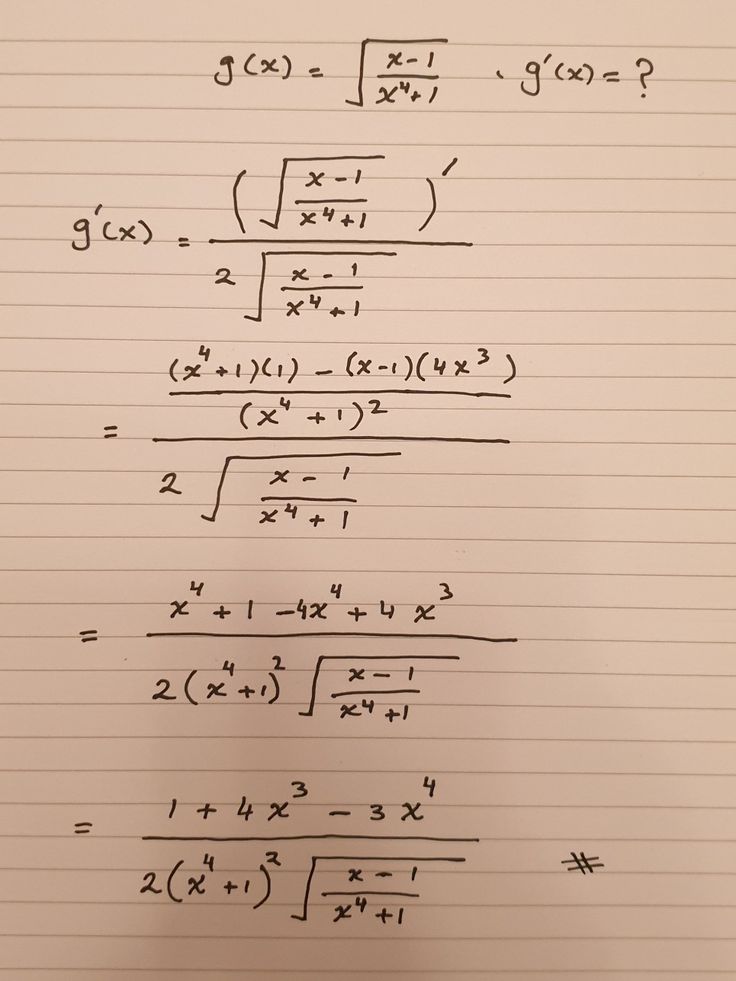 g(x) = √((x-1)/(x⁴+1)) . g'(x) = ?
g'(x) = (√((x-1)/(x⁴+1)))' / (2√((x-1)/(x⁴+1)))
= (((x⁴+1)(1) - (x-1)(4x³)) / (x⁴+1)²) / (2√((x-1)/(x⁴+1)))
= (x⁴+1-4x⁴+4x³) / (2(x⁴+1)²√((x-1)/(x⁴+1)))
= (1+4x³-3x⁴) / (2(x⁴+1)²√((x-1)/(x⁴+1))) #